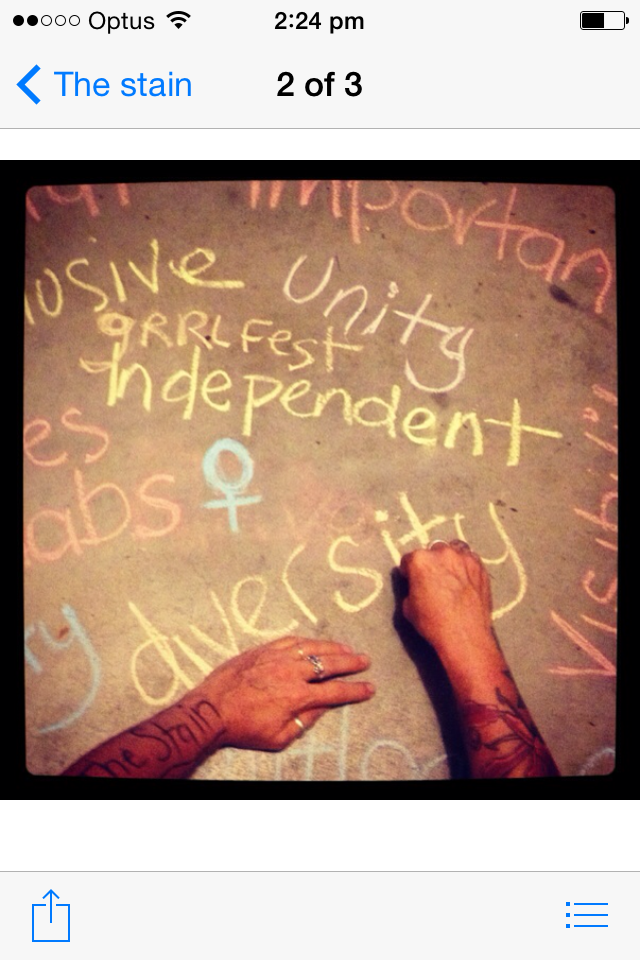 Optus 2:24 pm
The stain 2 of 3
Importan
usive Unity
gRRLFest
Independent
es
abs
diversity
Visibili
ry
The Stain